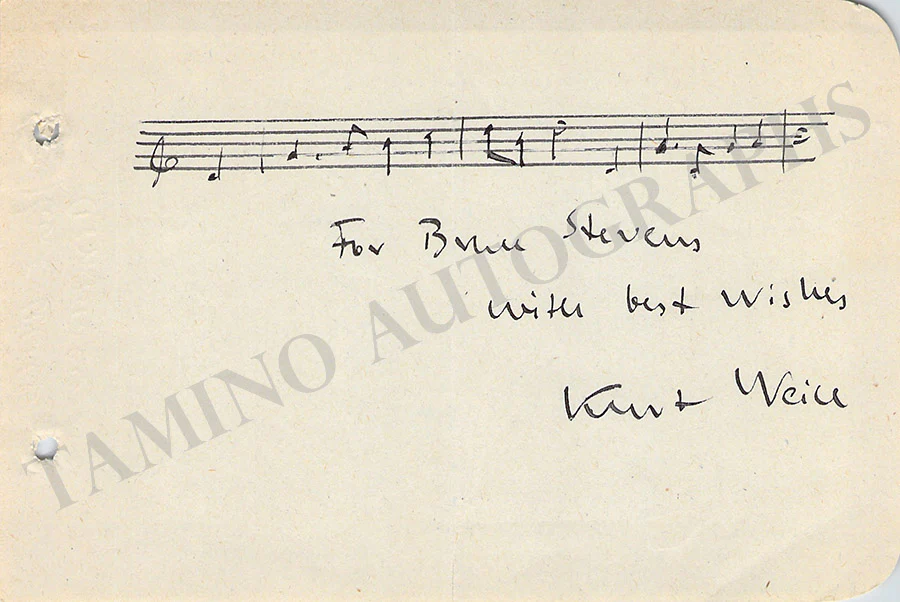 For Bruce Stevens
with best wishes
Kurt Weill
TAMINO AUTOGRAPHS